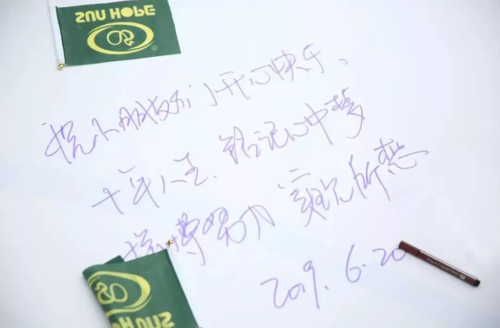 SUN HOPE
祝小朋友们开心快乐、
十年人生.铭记心中梦
拼搏努力 实现所想
2019.6.20
SUN HOPE